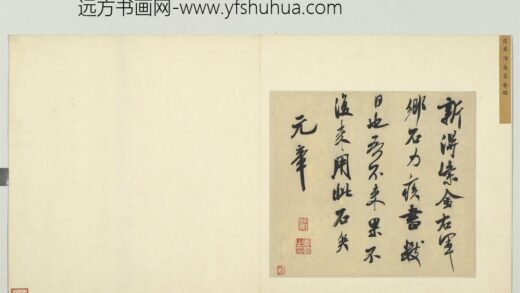 远方书画网-www.yfshuhua.com
新得紫金右軍
鄉石力疾書數
日也吾不來果不
復來用此石矣
元章